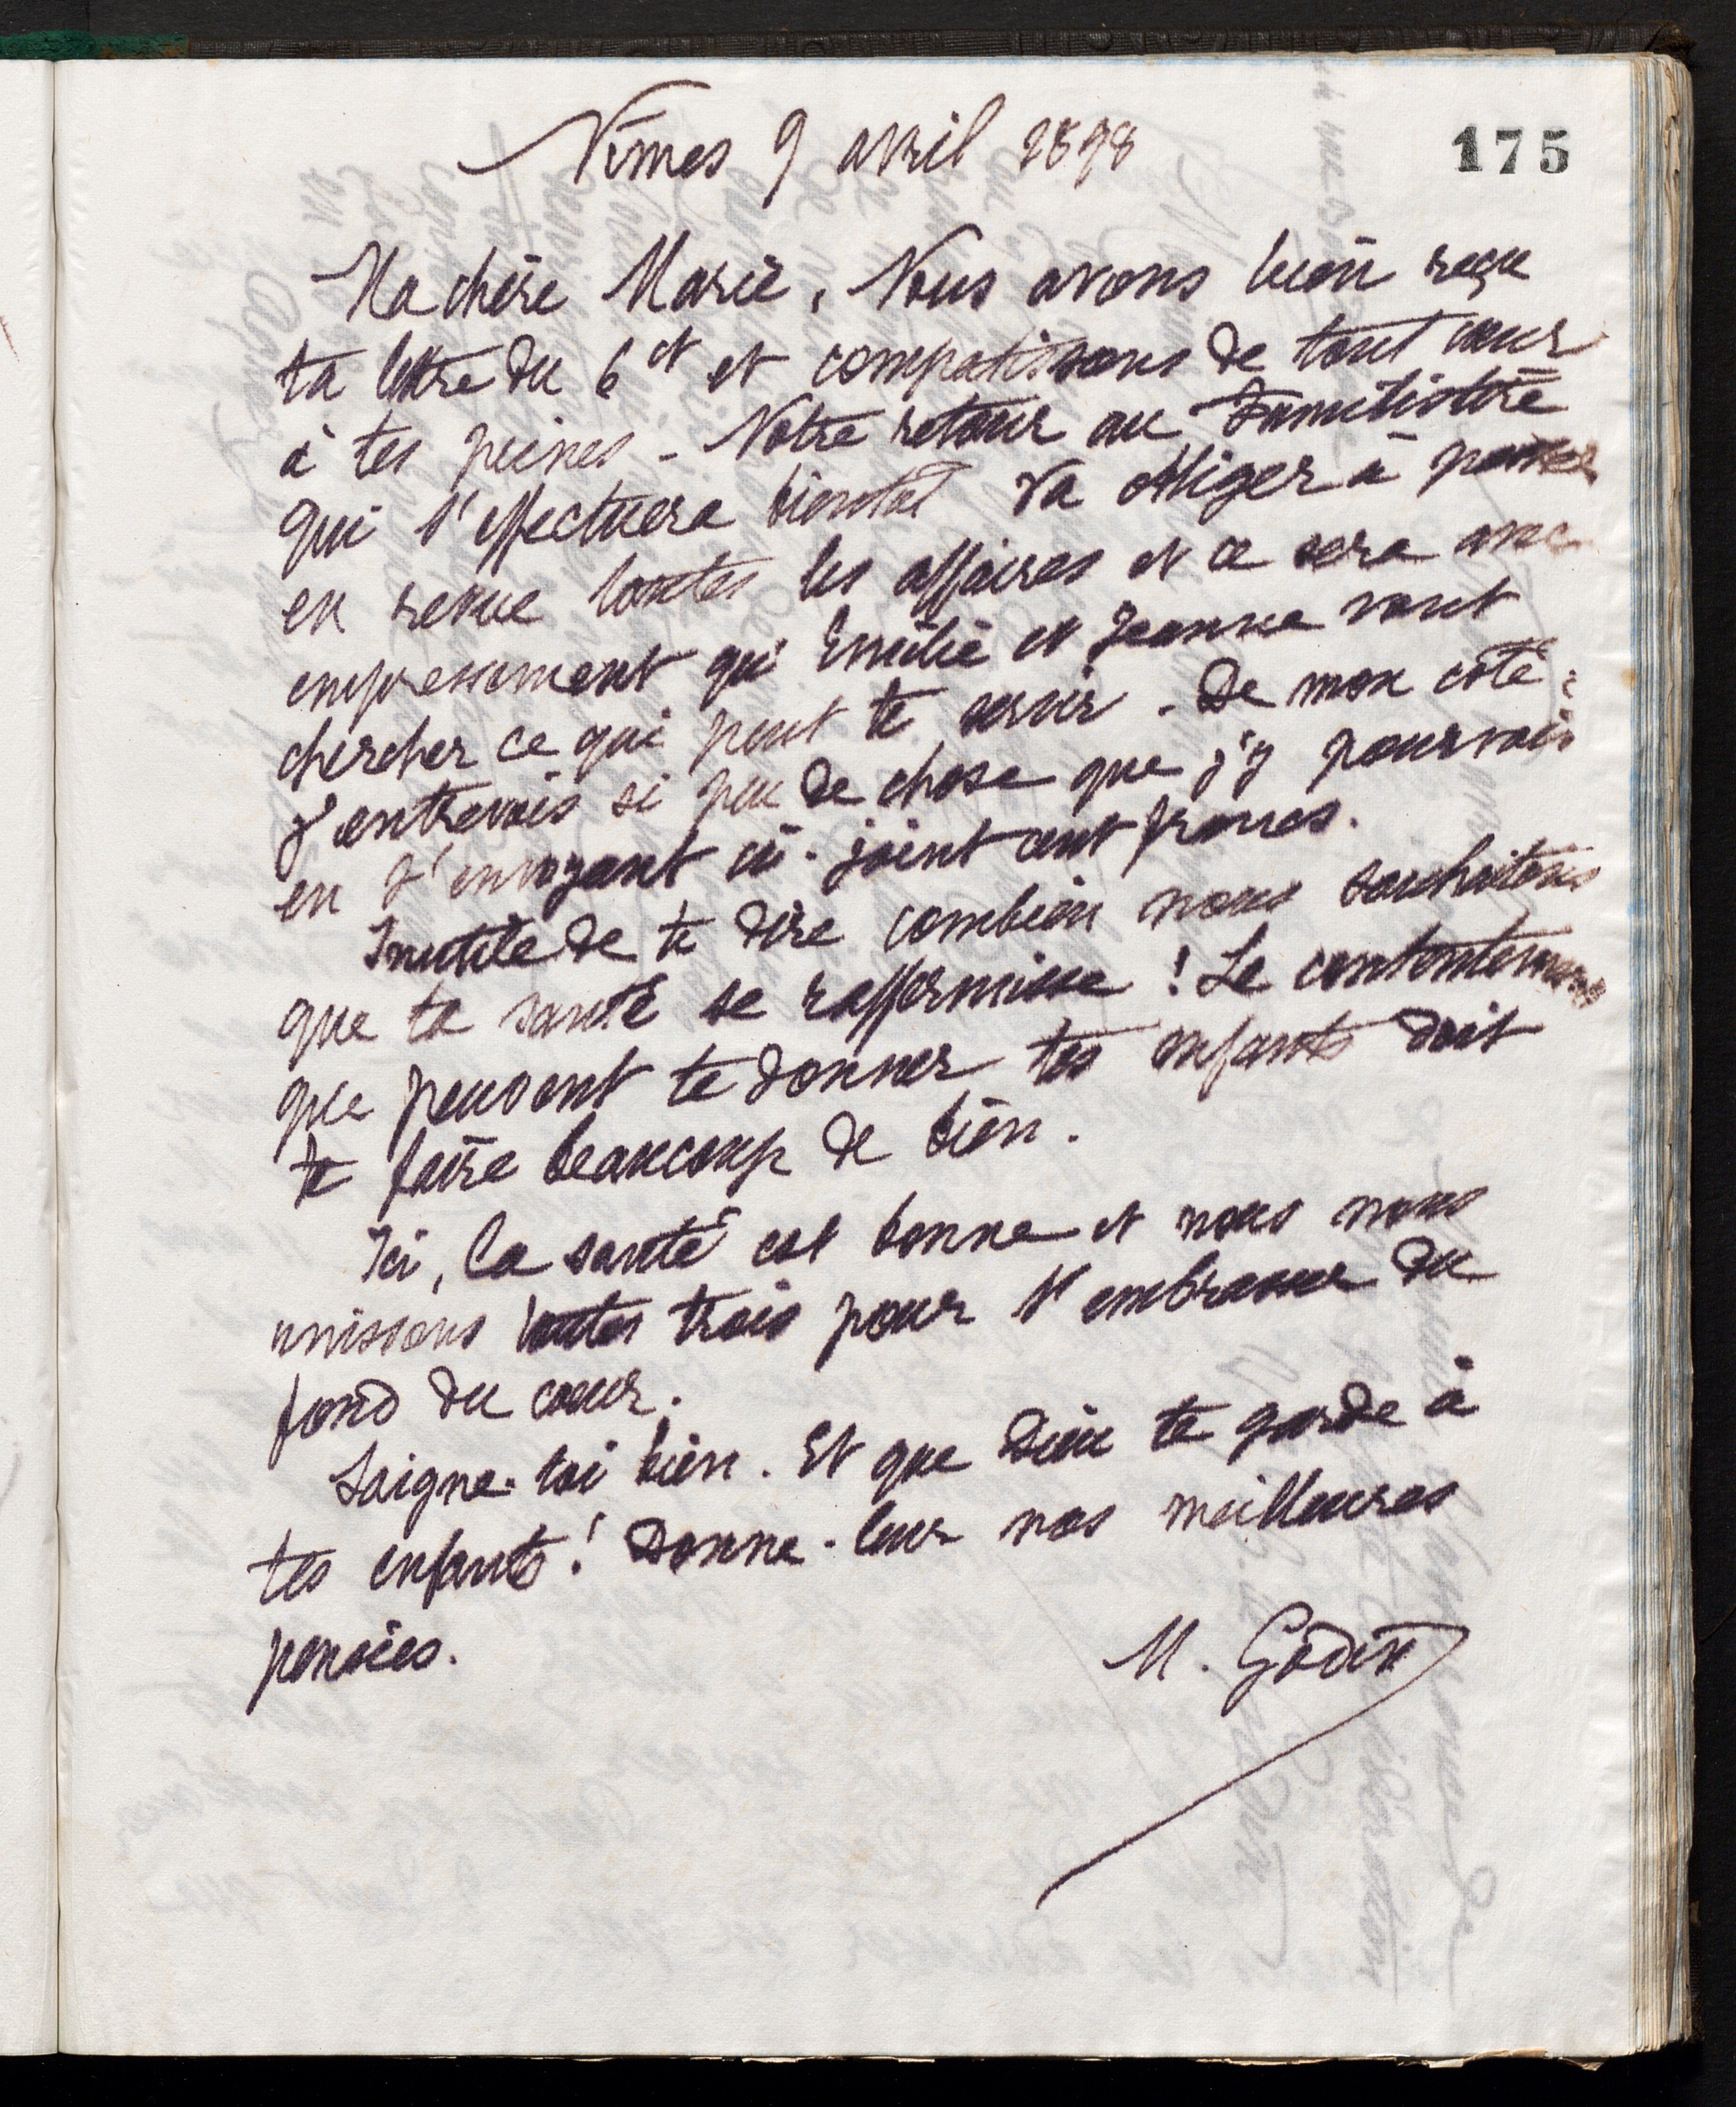 175
Nîmes 9 avril 1898
Ma chère Marie, Nous avons bien reçu
ta lettre du 6 ct et compatissons de tout cœur
à tes peines - Notre retour au Familistère
qui s'effectuera bientôt va obliger à passer
en revue toutes les affaires et ce sera avec
empressement qu'Emilie et Jeanne vont
chercher ce qui peut te servir. De mon côté
j'entrevois si peu de chose que j'y pourvois
en t'envoyant ci-joint cent francs.
Inutile de te dire combien nous souhaitons
que ta santé se raffermisse ! Le contentement
que peuvent te donner tes enfants doit
te faire beaucoup de bien.
Ici, la santé est bonne et nous nous
unissons toutes trois pour t'embrasser du
fond du cœur.
Soigne-toi bien. Et que Dieu te garde à
tes enfants ! Donne-leur nos meilleures
pensées.
M. Godin